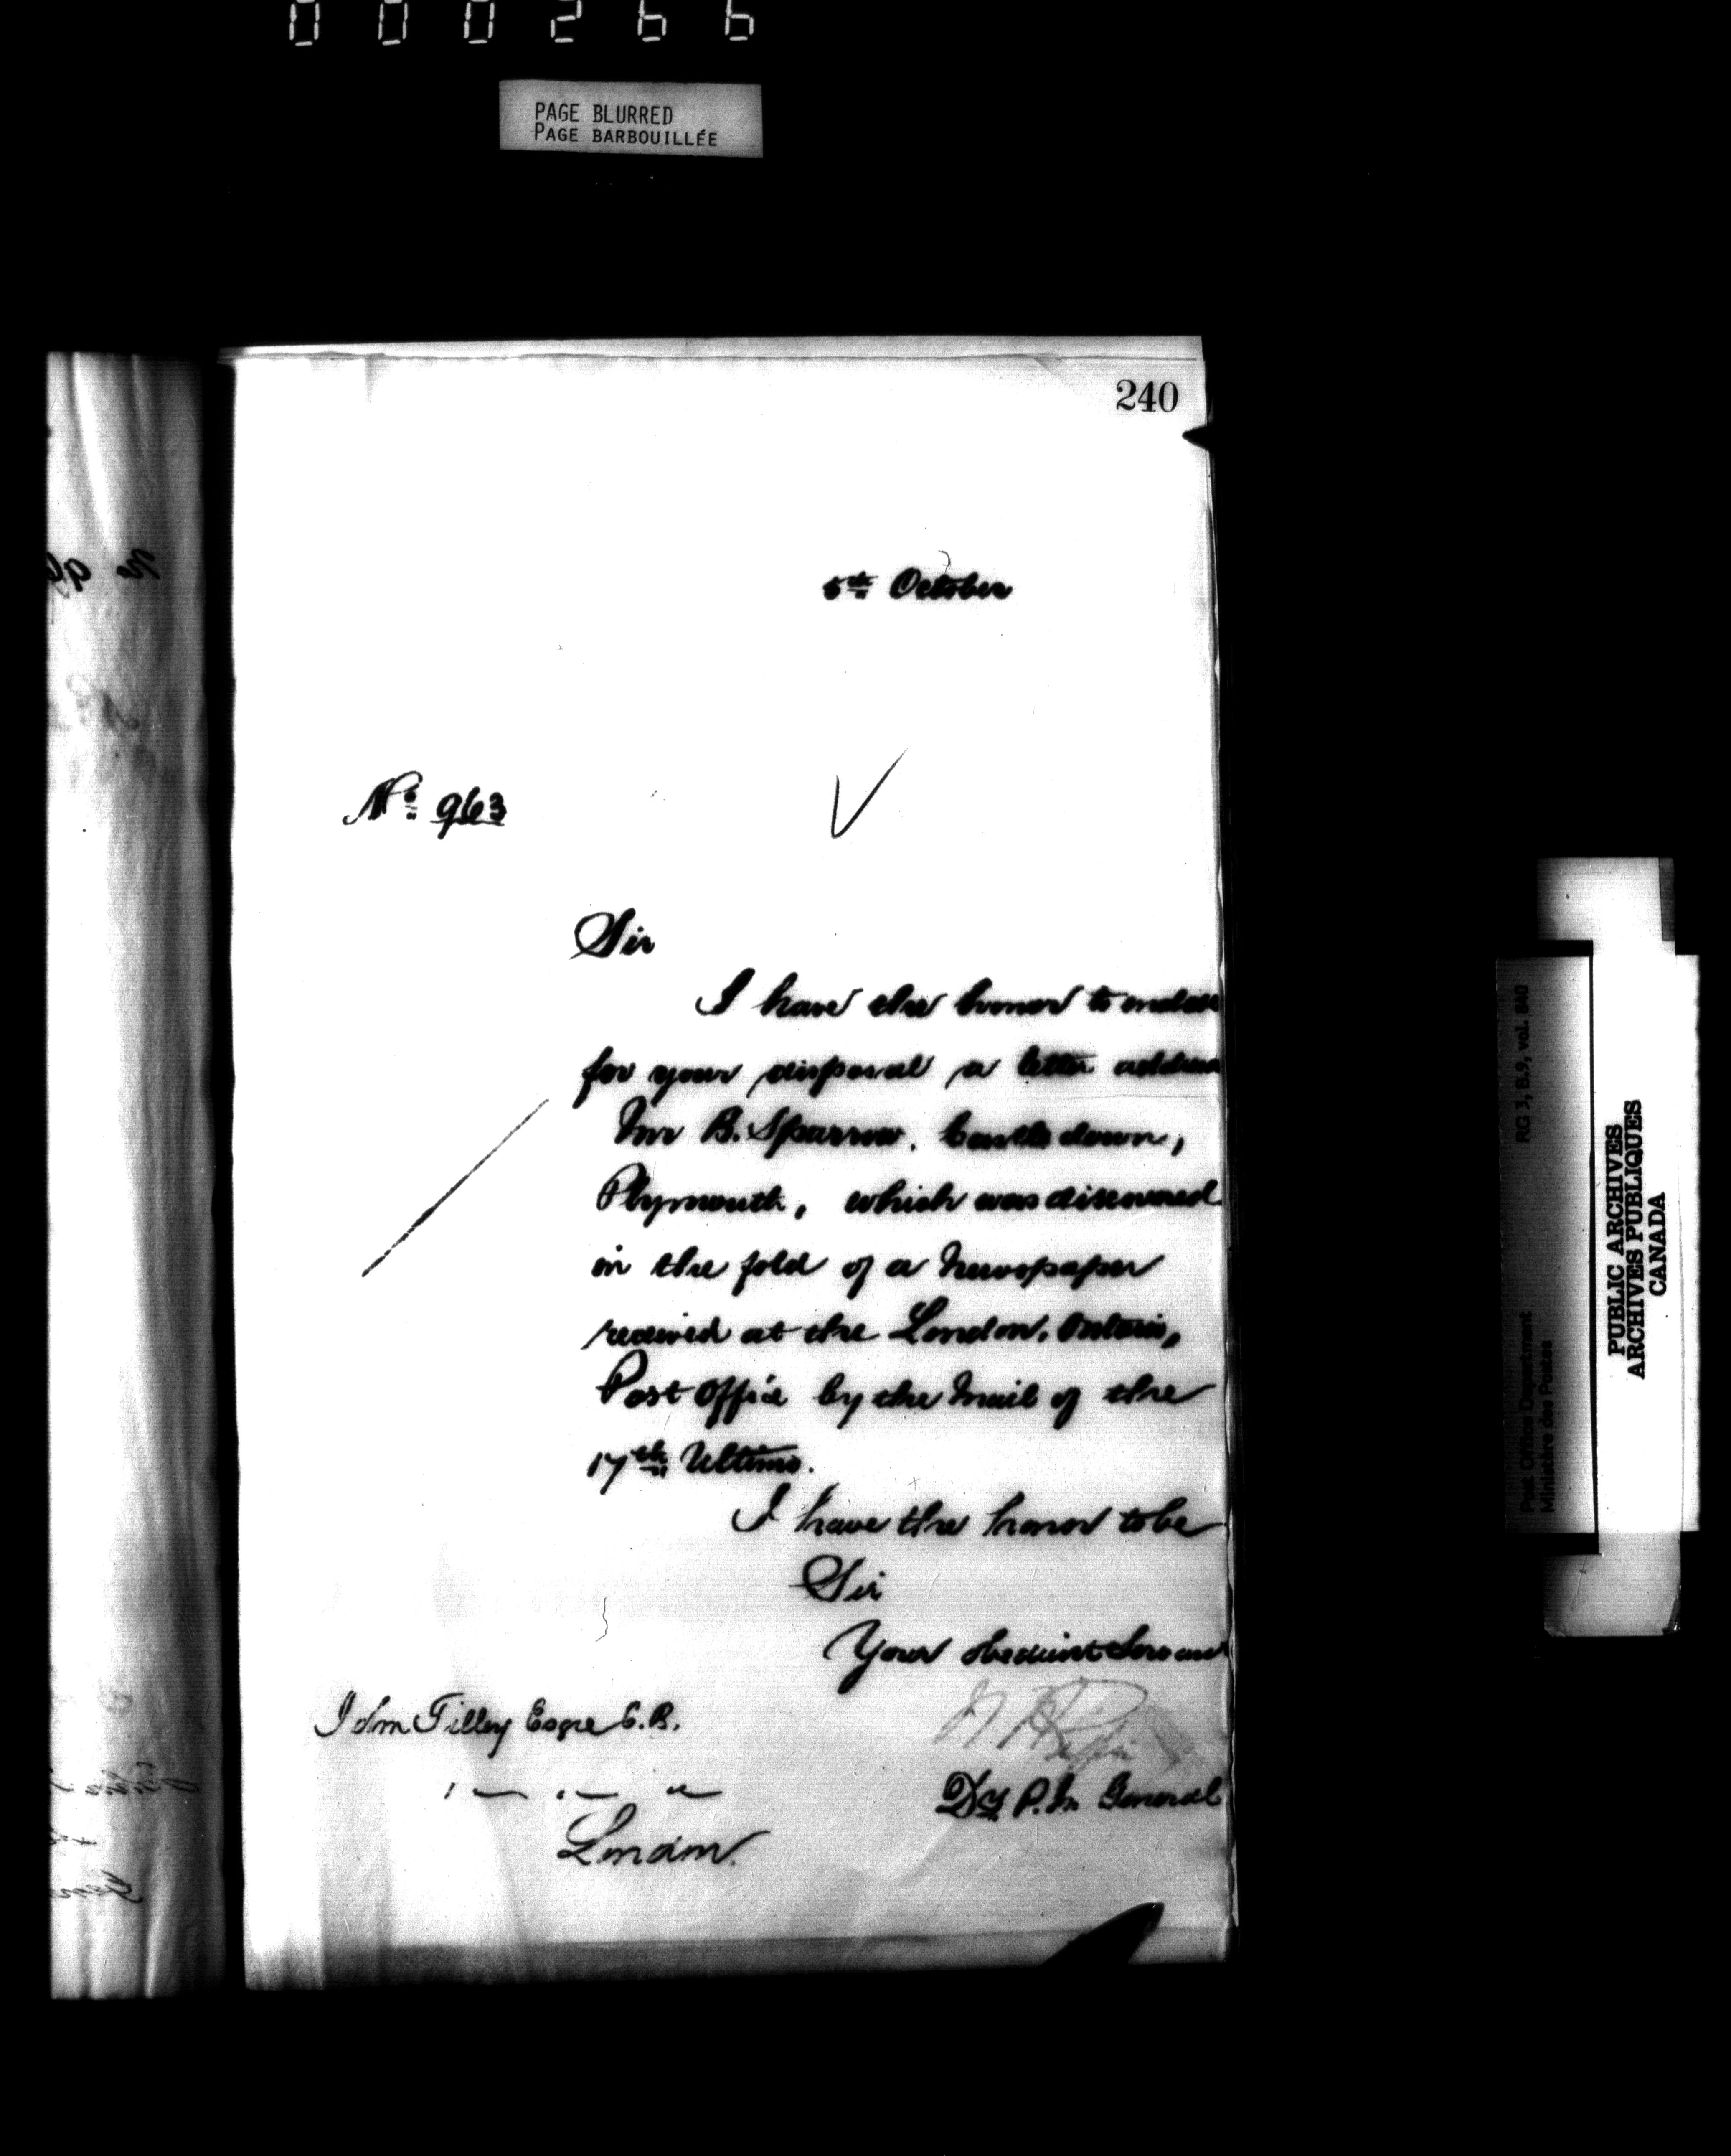 000266
PAGE BLURRED
PAGE BARBOUILLÉE
240
5th October
No 963
Sir
I have the honor to enclose
for your disposal a letter address
Mr B. Sparrow, down,
Plymouth, which was discovered
in the fold of a Newspaper
received at the London, Ontario,
Post Office by the Mail of the
17th Ultimo.
I have the honor to be
Sir
Your obedient Servant
John Tilley Esqre C.B.
Dy P.M. General
London.
RG 3, B.9, vol. 840
Post Office Department
Ministère des Postes
PUBLIC ARCHIVES
ARCHIVES PUBLIQUES
CANADA